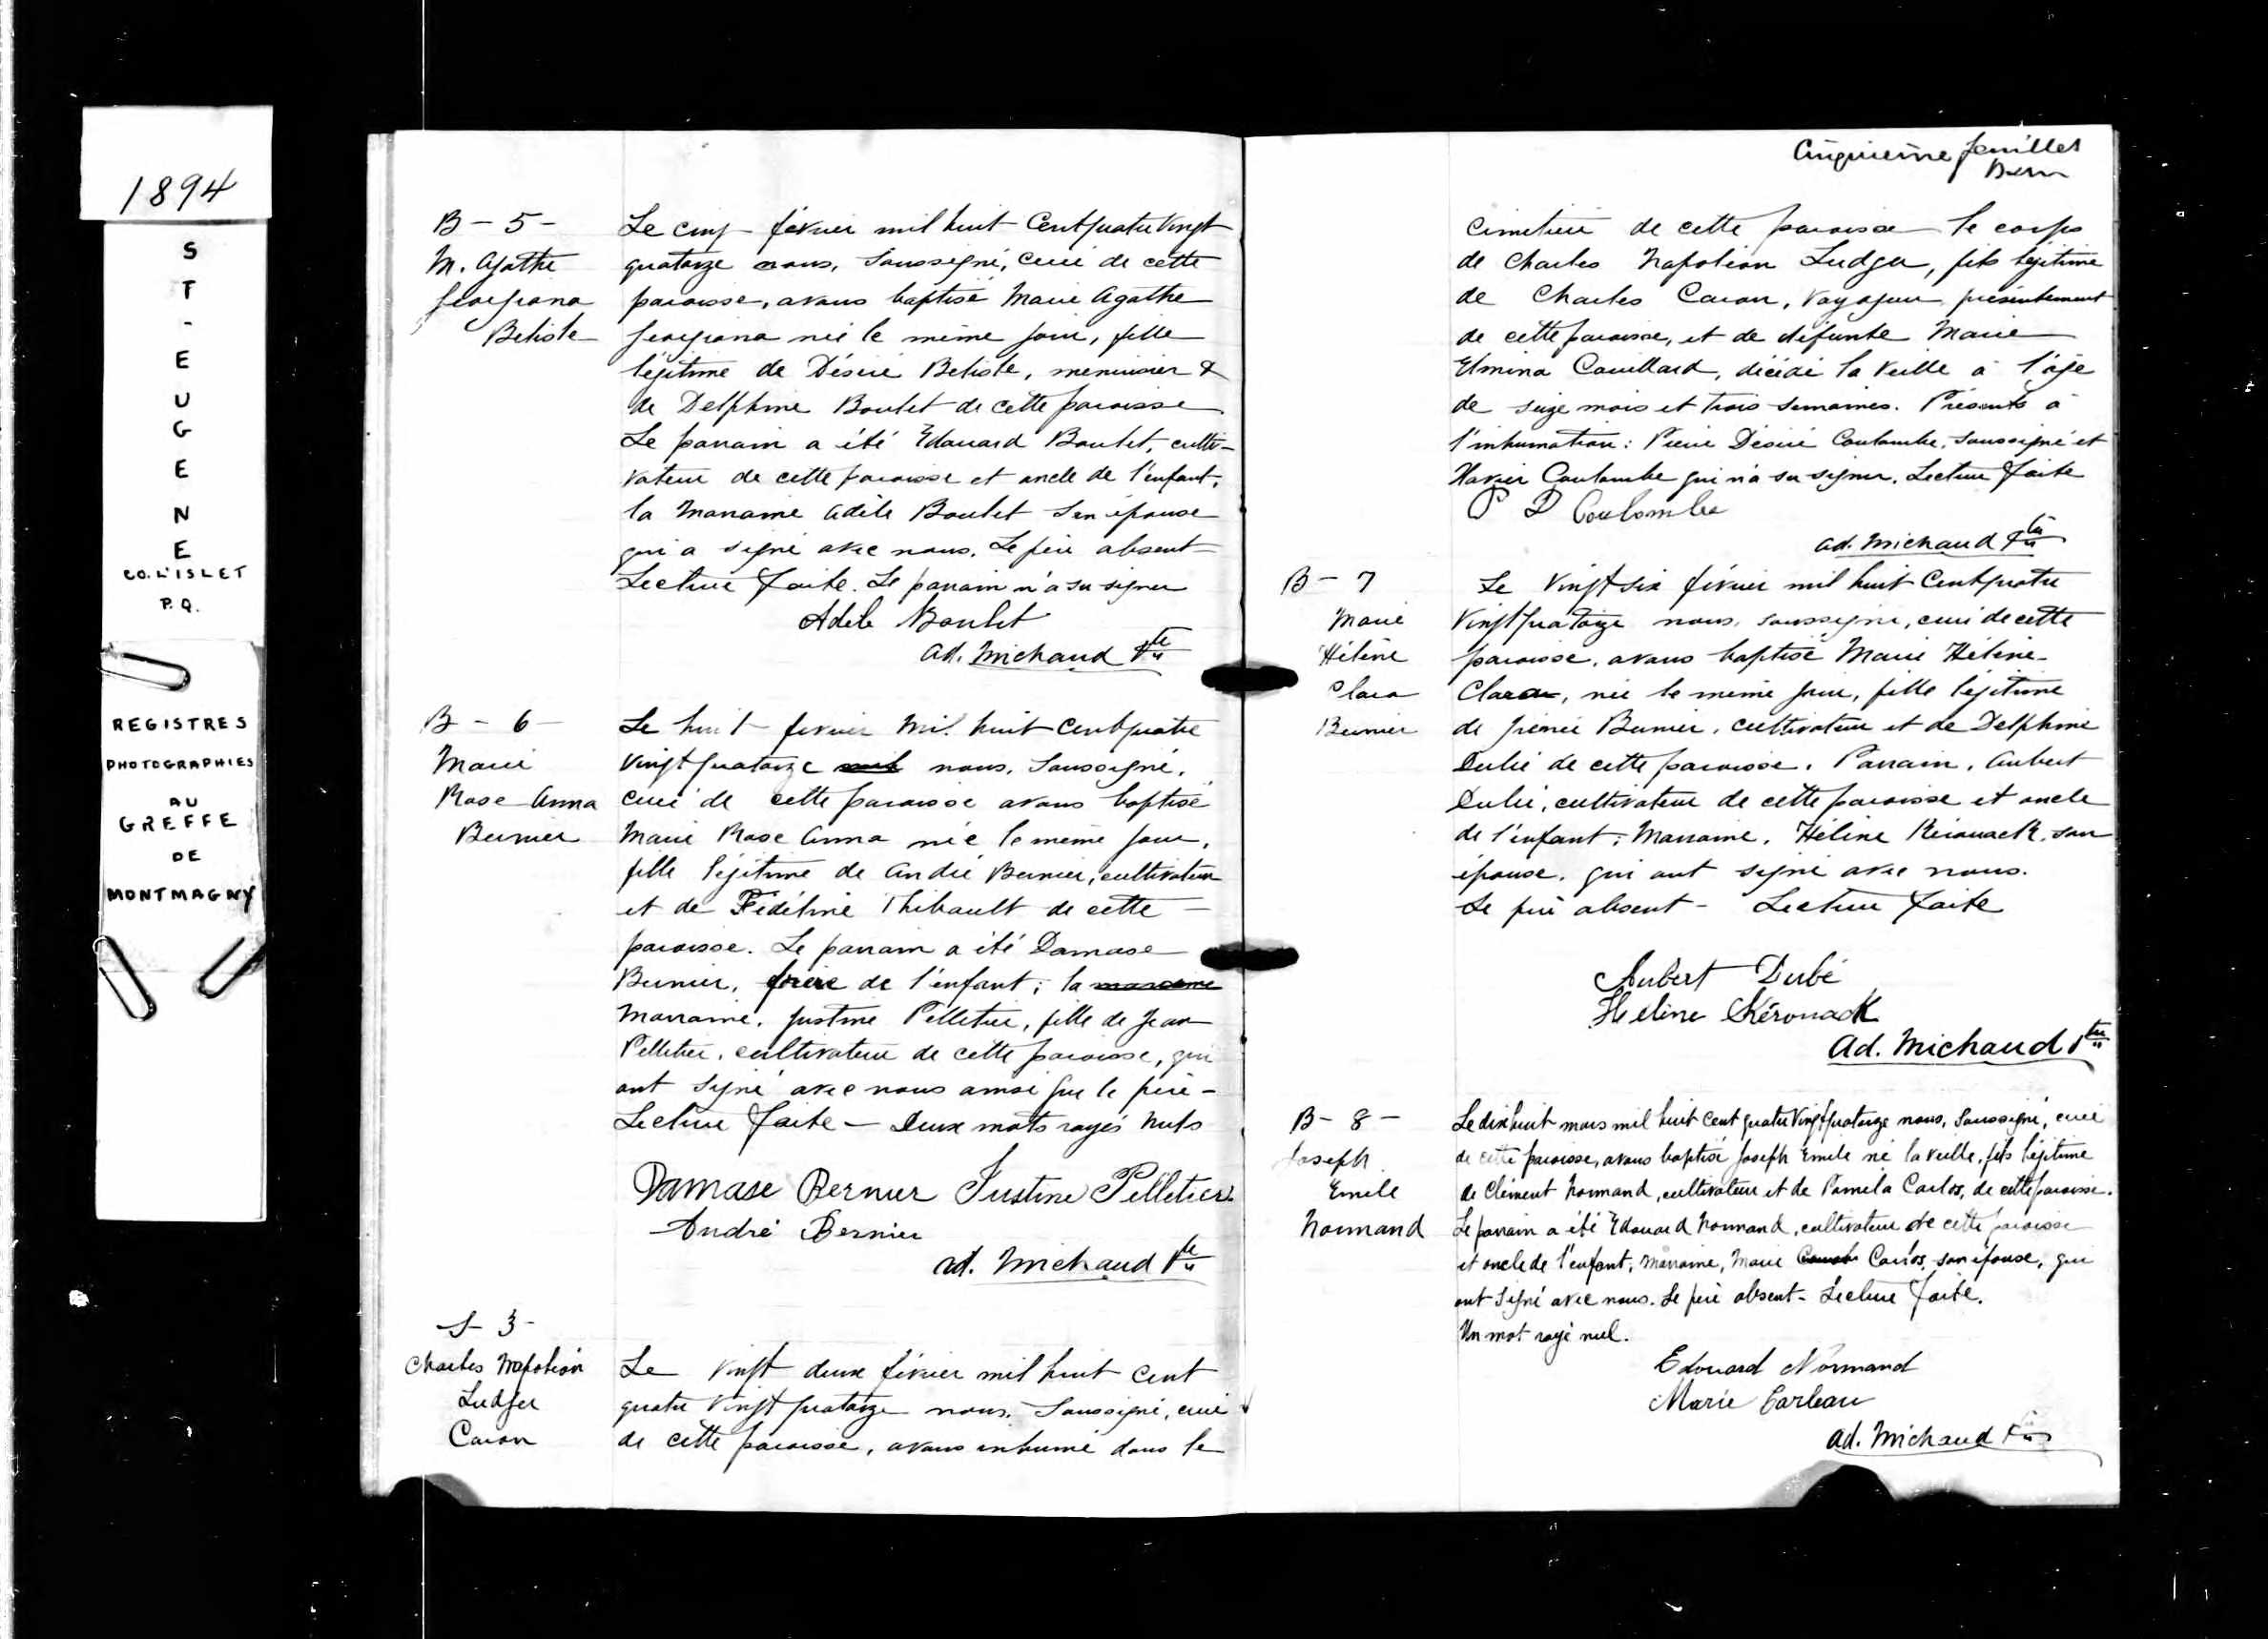 1894
S
T
-
E
U
G
E
N
E
CO. L'ISLET
P.Q.
REGISTRES
PHOTOGRAPHIES
AU
GREFFE
DE
MONTMAGNY
B - 5 -
M. Agathe
Georgiana
Belisle
Le cinq février mil huit cent quatre vingt
quatorze nous, soussigné, curé de cette
paroisse, avons baptisé Marie Agathe
Georgiana née le même jour, fille
légitime de Désiré Belisle, menuisier &
de Delphine Boulet de cette paroisse
Le parrain a été Edouard Boulet, culti-
vateur de cette paroisse et oncle de l'enfant,
la marraine Adèle Boulet son épouse
qui a signé avec nous. Le père absent
Lecture faite. Le parrain n'a su signer
Adele Boulet
Ad. Michaud Ptre
B - 6 -
Marie
Rose Anna
Bernier
Le huit fevrier mil huit cent quatre
vingt quatorze mil nous, soussigné,
curé de cette paroisse avons baptisé
Marie Rose Anna née le même jour,
fille légitime de André Bernier, cultivateur
et de Fédéline Thibault de cette
paroisse. Le parrain a été Damase
Bernier, frère de l'enfant; la marraine
marraine, Justine Pelletier, fille de Jean
Pelletier, cultivateur de cette paroisse, qui
ont signé avec nous ainsi que le père -
Lecture faite - Deux mots rayés nuls
Damase Bernier Justine Pelletier
André Bernier
Ad. Michaud Ptre
S - 3 -
Charles Napoléon
Ludger
Caron
Le vingt deux février mil huit cent
quatre vingt quatorze nous, soussigné, curé
de cette paroisse, avons inhumé dans le
Cinquième feuillet
cimetière de cette paroisse le corps
de Charles Napoléon Ludger, fils légitime
de Charles Caron, voyageur présentement
de cette paroisse, et de défunte Marie
Elmina Couillard, décédé la veille à l'âge
de seize mois et trois semaines. Présents à
l'inhumation: Pierre Désiré Coulombe, soussigné et
Xavier Coulombe qui n'a su signer. Lecture faite
P D Coulombe
Ad. Michaud Ptre
B - 7
Marie
Hélène
Clara
Bernier
Le vingt six février mil huit cent quatre
vingt quatorze nous, soussigné, curé de cette
paroisse, avons baptisé Marie Hélène
Clara, née le même jour, fille légitime
de Irénée Bernier, cultivateur et de Delphine
Dubé de cette paroisse. Parrain, Aubert
Dubé, cultivateur de cette paroisse et oncle
de l'enfant; marraine, Hélène Kérouack, son
épouse, qui ont signé avec nous.
Le père absent - Lecture faite
Aubert Dubé
Heléne Kérouack
Ad. Michaud Ptre
B - 8 -
Joseph
Emile
Normand
Le dix huit mars mil huit cent quatre vingt quatorze nous, soussigné, curé
de cette paroisse, avons baptisé Joseph Emile né la veille, fils légitime
de Clément Normand, cultivateur et de Paméla Carlos, de cette paroisse.
Le parrain a été Edouard Normand, cultivateur de cette paroisse
et oncle de l'enfant, marraine, Marie Carlos, son épouse, qui
ont signé avec nous. Le père absent - Lecture faite.
Un mot rayé nul.
Edouard Normand
Marie Carleau
Ad. Michaud Ptre